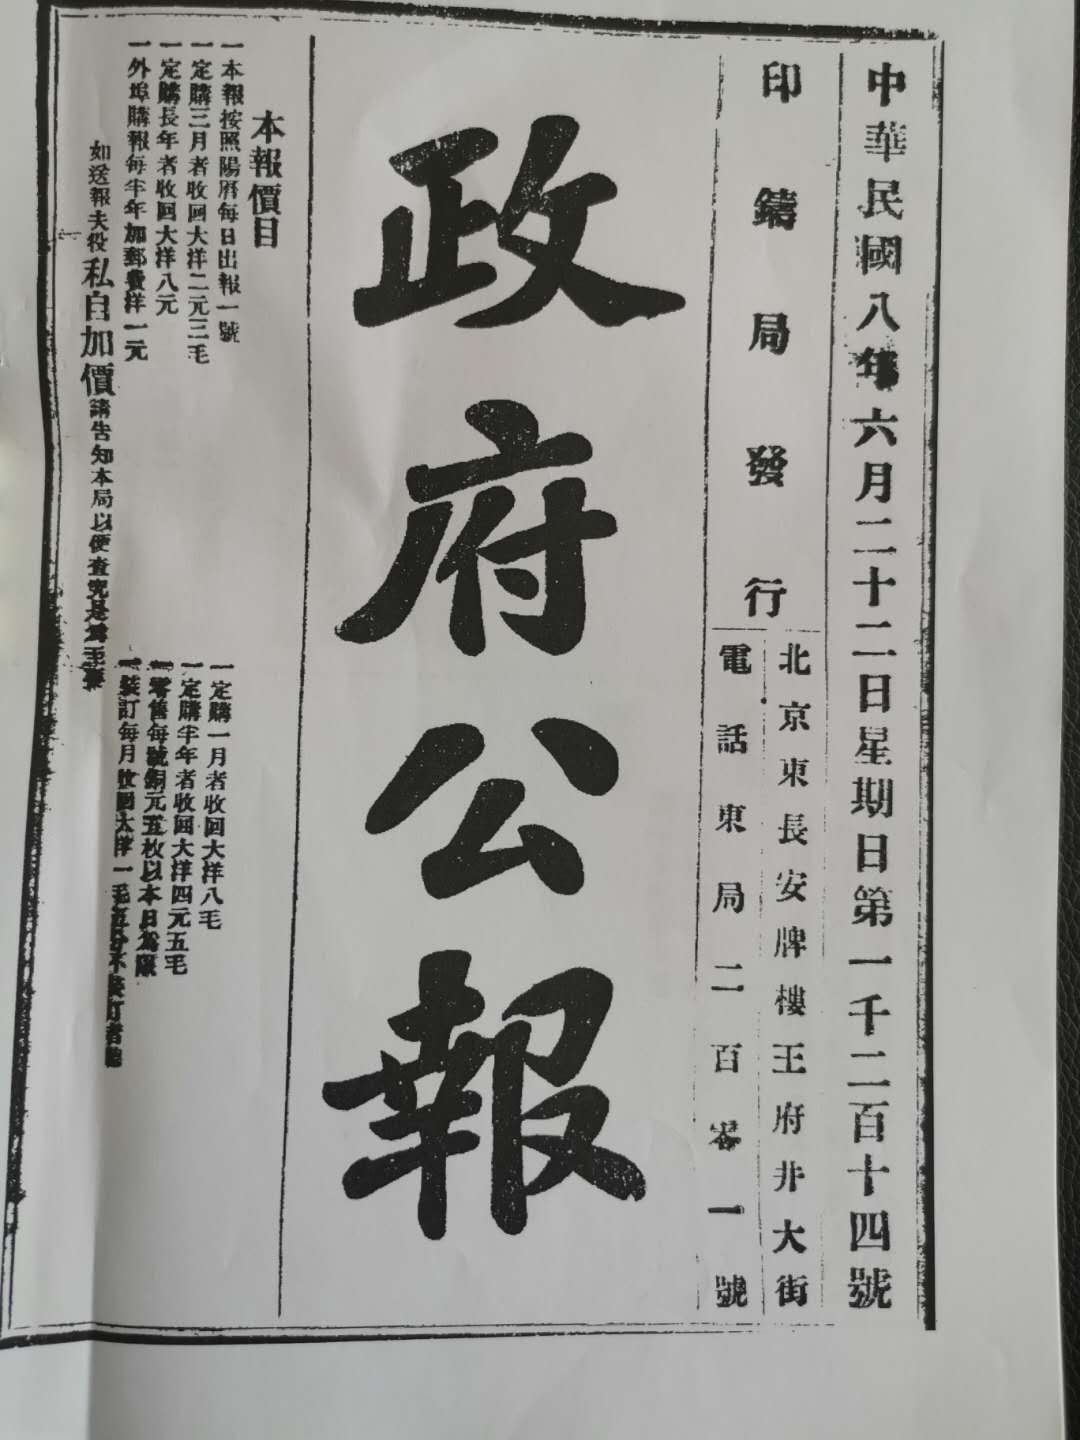 中華民國八年六月二十二日星期日第一千二百十四號
印鑄局發行
北京東長安牌樓王府井大街
電話東局二百零一號
政府公報
本報價目
一本報按照陽曆每日出報一號
一定購三月者收囘大洋二元三毛
一定購長年者收囘大洋八元
一外埠購報每半年加郵費洋一元
一定購一月者收囘大洋八毛
一定購半年者收囘大洋四元五毛
一零售每號銅元五枚以本日為限
一裝訂每月收囘大洋一毛五分不裝訂者聽
如送報夫役私自加價請告知本局以便查究是為至要